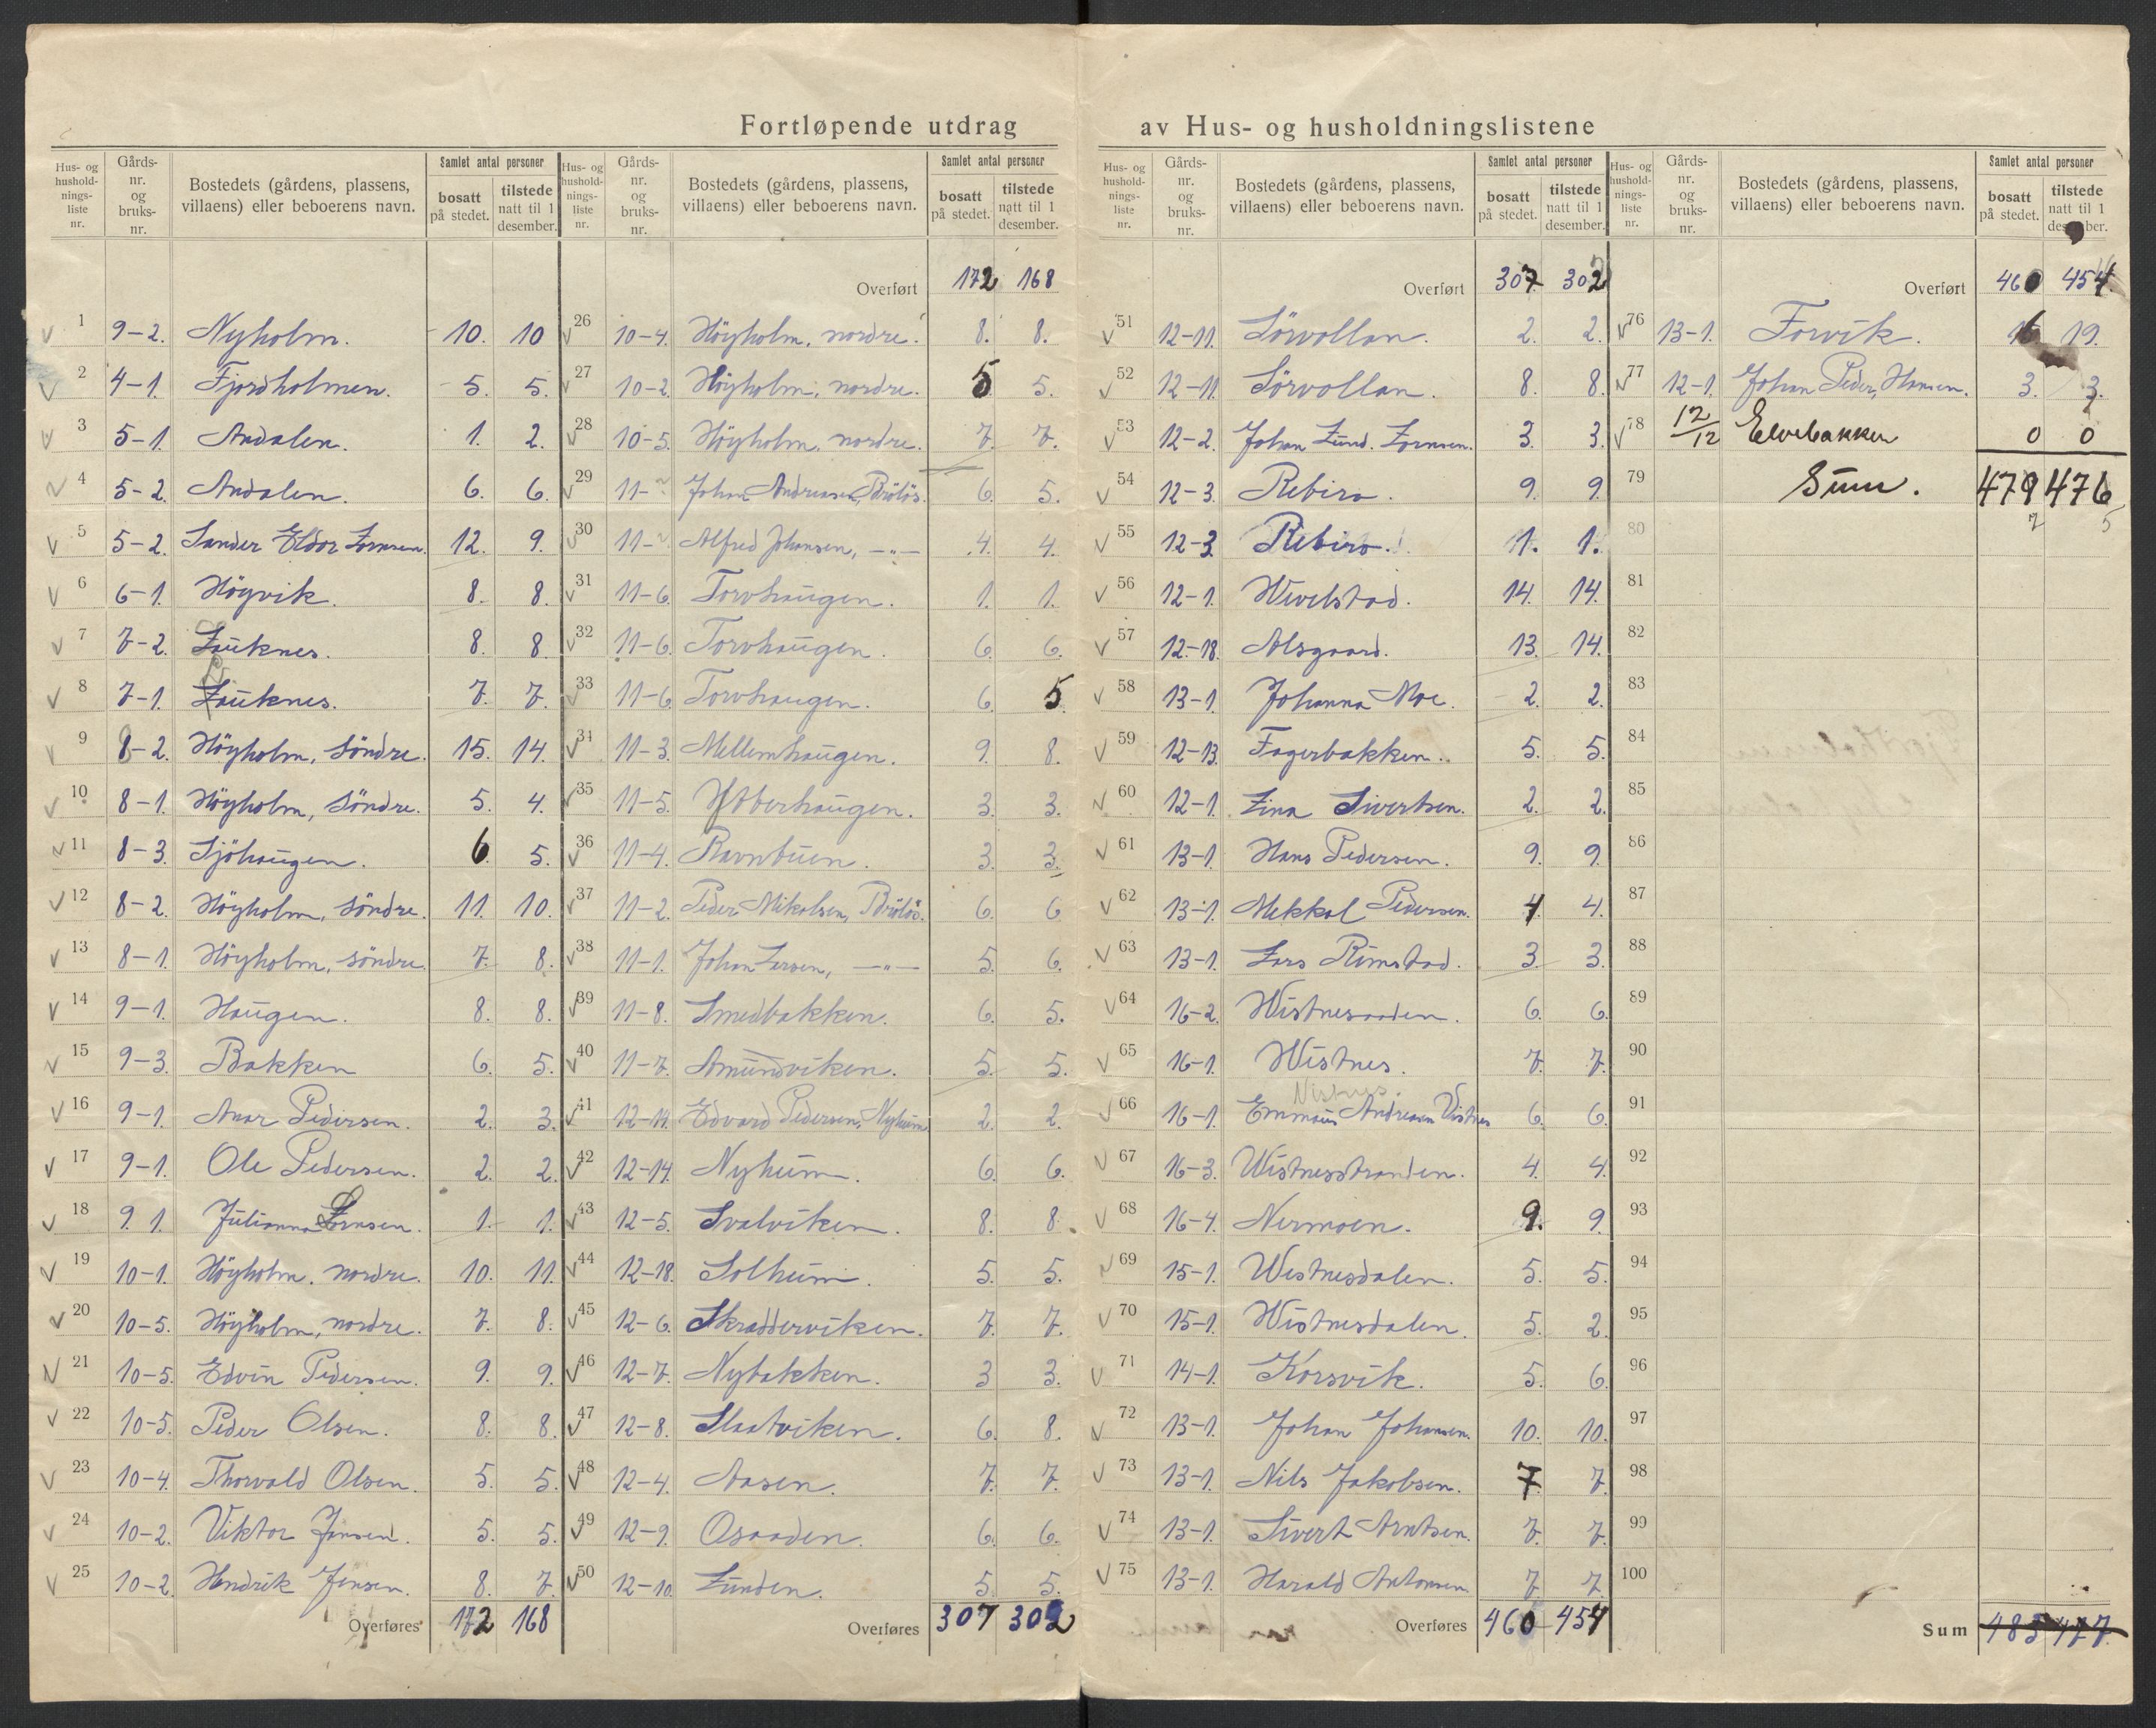 Fortløpende utdrag av Hus- og husholdningslistene
Hus- og husholdnings-liste nr. | Gårds-nr. og bruks-nr. | Bostedets (gårdens, plassens, villaens) eller beboerens navn. | Samlet antal personer | bosatt på stedet. | tilstede natt til 1 desember.
1 9-2. Nyholm. 10. 10
2 4-1. Fjordholmen. 5. 5.
3 5-1. Andalen. 1. 2.
4 5-2. Andalen. 6. 6.
5 5-2. Sander Eldor Lornsen. 12. 9.
6 6-1. Höyvik. 8. 8.
7 7-2. Lauknes. 8. 8.
8 7-1. Lauknes. 7. 7.
9 8-2. Höyholm, Söndre. 15. 14.
10 8-1. Höyholm, Söndre. 5. 4.
11 8-3. Sjöhaugen. 6. 5.
12 8-2. Höyholm, Söndre. 11. 10.
13 8-1. Höyholm, söndre. 7. 8.
14 9-1. Haugen. 8. 8.
15 9-3. Bakken 6. 5.
16 9-1. Pedersen. 2. 3.
17 9-1. Ole Pedersen. 2. 2.
18 9. 1. Julianna Lornsen. 1. 1.
19 10-1. Höyholm. nordre. 10. 11.
20 10-5. Höyholm, nordre. 7. 8.
21 10-5. Edvin Pedersen. 9. 9.
22 10-5. Peder Olsen. 8. 8.
23 10-4. Thorvald Olsen. 5. 5.
24 10-2. Viktor Jensen. 5. 5.
25 10-2. Hendrik Jensen. 8. 7.
Overføres 172 168
Hus- og husholdnings-liste nr. | Gårds-nr. og bruks-nr. | Bostedets (gårdens, plassens, villaens) eller beboerens navn. | Samlet antal personer | bosatt på stedet. | tilstede natt til 1 desember.
Overført 172 168
26 10-4. Höyholm, nordre. 8. 8.
27 10-2. Höyholm, nordre. 5 5.
28 10-5. Höyholm, nordre. 7. 7.
29 11- Johan Andreasen, Brölös. 6. 5.
30 11- Alfred Johansen, —"— 4. 4.
31 11-6. Torvhaugen. 1. 1.
32 11-6. Torvhaugen. 6. 6.
33 11-6. Torvhaugen. 6. 5
34 11-3. Mellemhaugen. 9. 8.
35 11-5. Ytterhaugen. 3. 3.
36 11-4. Ravnbuen. 3. 3.
37 11-2. Peder Mikalsen, Brölös. 6. 6
38 11-1. Johan Larsen, —"— 5. 6.
39 11-8. Smedbakken. 6. 5.
40 11-7. Amundviken. 5. 5.
41 12-14. Edvard Pedersen, Nyheim 2. 2.
42 12-14. Nyheim. 6. 6.
43 12-5. Svalviken. 8. 8.
44 12-18. Solheim. 5. 5.
45 12-6. Skraddervíken. 7. 7.
46 12-7. Nybakken. 3 3.
47 12-8. Slaatviken. 6. 8.
48 12-4. Aasen. 7. 7.
49 12-9. Osaaden. 6. 6.
50 12-10. Lunden. 5. 5.
Overføres 307 302
Hus- og husholdnings-liste nr. | Gårds-nr. og bruks-nr. | Bostedets (gårdens, plassens, villaens) eller beboerens navn. | Samlet antal personer | bosatt på stedet. | tilstede natt til 1 desember.
Overført 307 302
51 12-11. Sörvollan. 2. 2.
52 12-11. Sörvollan. 8. 8.
53 12-2. Johan Lund. Lornsen. 3. 3.
54 12-3. Rebiro. 9. 9.
55 12-3. Rebiro. 1. 1.
56 12-1. Wevelstad. 14. 14.
57 12-18. Alsgaard. 13. 14.
58 13-1. Johanna Moe. 2. 2.
59 12-13. Fagerbakken. 5. 5.
60 12-1. Lina Sivertsen. 2. 2.
61 13-1. Hans Pedersen. 9. 9.
62 13-1. Mekkal Pedersen. 4. 4.
63 13-1. Lars Rimstad. 3. 3.
64 16-2. Wistnesaaden. 6. 6.
65 16-1. Wistnes. 7. 7.
Vistnes.
66 16-1. Emmaus Andreasen Vistnes 6. 6.
67 16-3. Wistnesstranden. 4. 4.
68 16-4. Nermoen. 9. 9.
69 15-1. Westnesdalen. 5. 5.
70 15-1. Wistnesdalen. 5. 2.
71 14-1. Korsvik. 5. 6.
72 13-1. Johan Johansen. 10. 10.
73 13-1. Nils Jakobsen. 7 7.
74 13-1. Sivert Arntsen. 7. 7.
75 13-1. Harald Antonsen. 7. 7.
Overføres 460 454
Hus- og husholdnings-liste nr. | Gårds-nr. og bruks-nr. | Bostedets (gårdens, plassens, villaens) eller beboerens navn. | Samlet antal personer | bosatt på stedet. | tilstede natt til 1 desember.
Overført 460 454
76 13-1. Forvik. 16 19.
77 12-1. Johan Peder Hansen. 3. 3.
78 12/12 Elvebakken 0 0
79 Sum. 479 476
80 7 5
81
82
83
84
85
86
87
88
89
90
91
92
93
94
95
96
97
98
99
100
Sum 485 477.